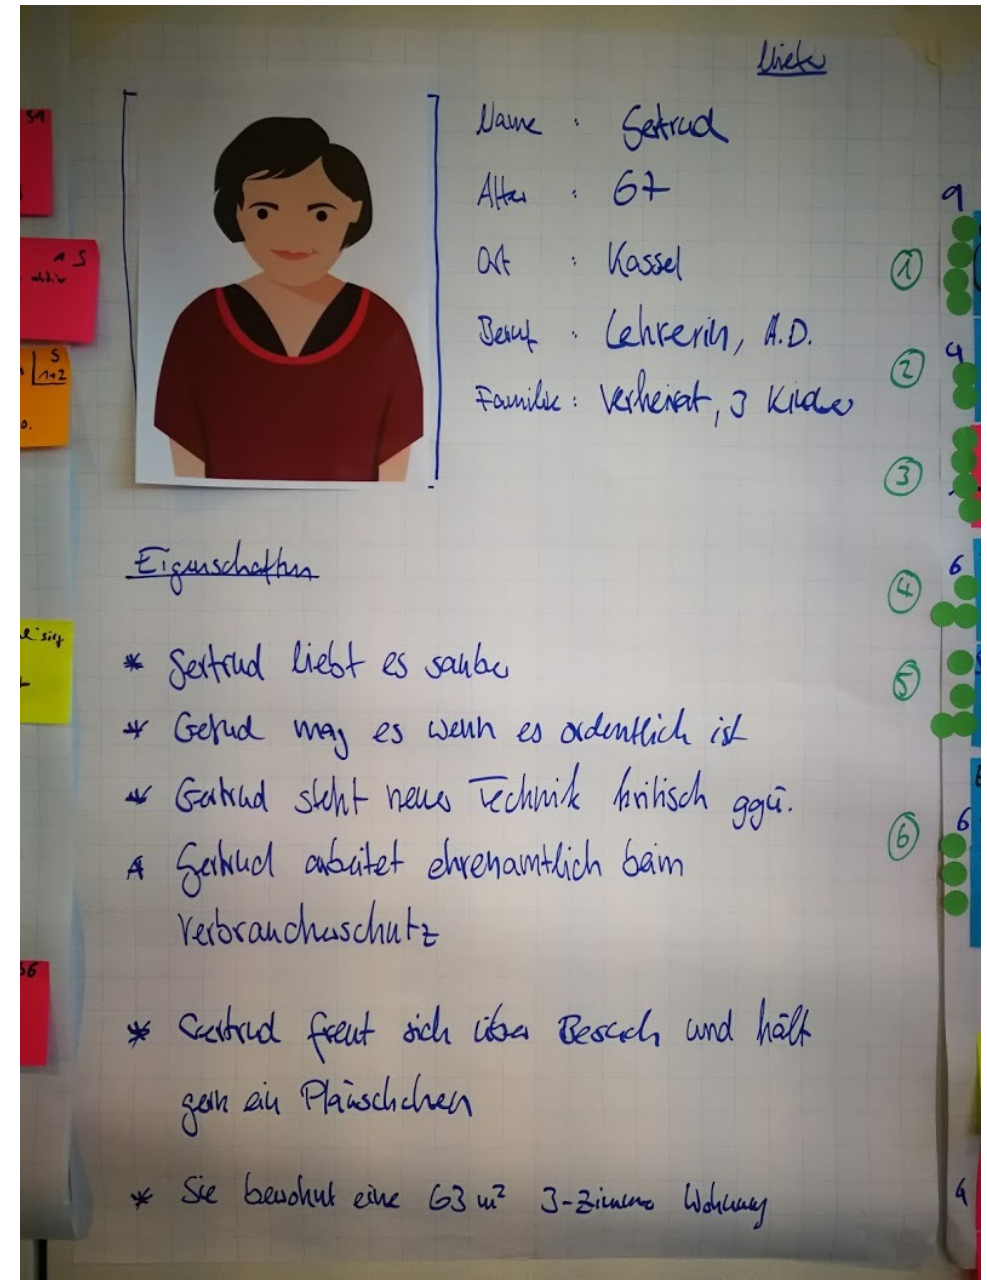 Mieter
Name : Gertrud
Alter : 67
Ort : Kassel
Beruf : Lehrerin, A.D.
Familie : Verheirat, 3 Kinder
Eigenschaften
* Gertrud liebt es sauber
* Getrud mag es wenn es ordentlich ist
* Gertrud steht neuer Technik kritisch ggü.
* Gertrud arbeitet ehrenamtlich beim
Verbraucherschutz
* Gertrud freut sich über Besuch und hält
gern ein Pläuschchen
* Sie bewohnt eine 63 m² 3-Zimmer Wohnung
1
2
3
4
5
6
9
4
6
6
4
S
1+2
1 S
aktiv